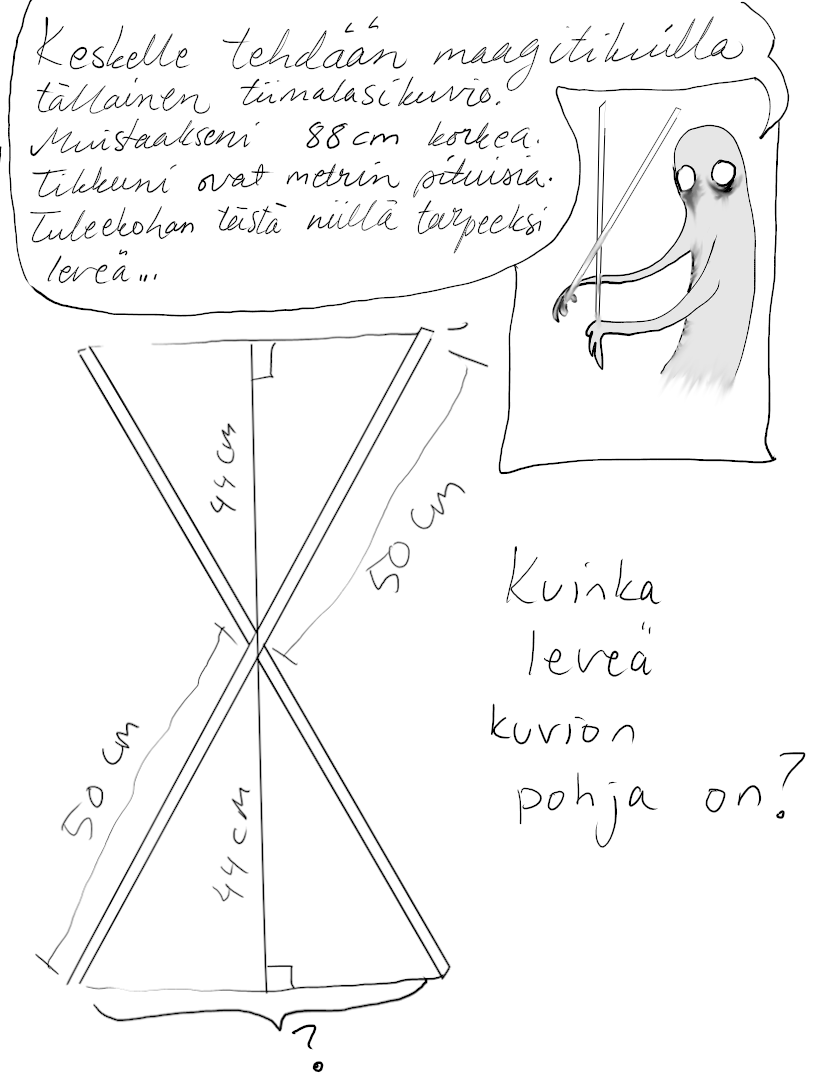 Keskelle tehdään maagitikuilla
tällainen tiimalasikuvio.
Muistaakseni 88 cm korkea.
Tikkuni ovat metrin pituisia.
Tuleekohan tästä niillä tarpeeksi
leveä...
44 cm
50 cm
50 cm
44 cm
?
Kuinka
leveä
kuvion
pohja on?